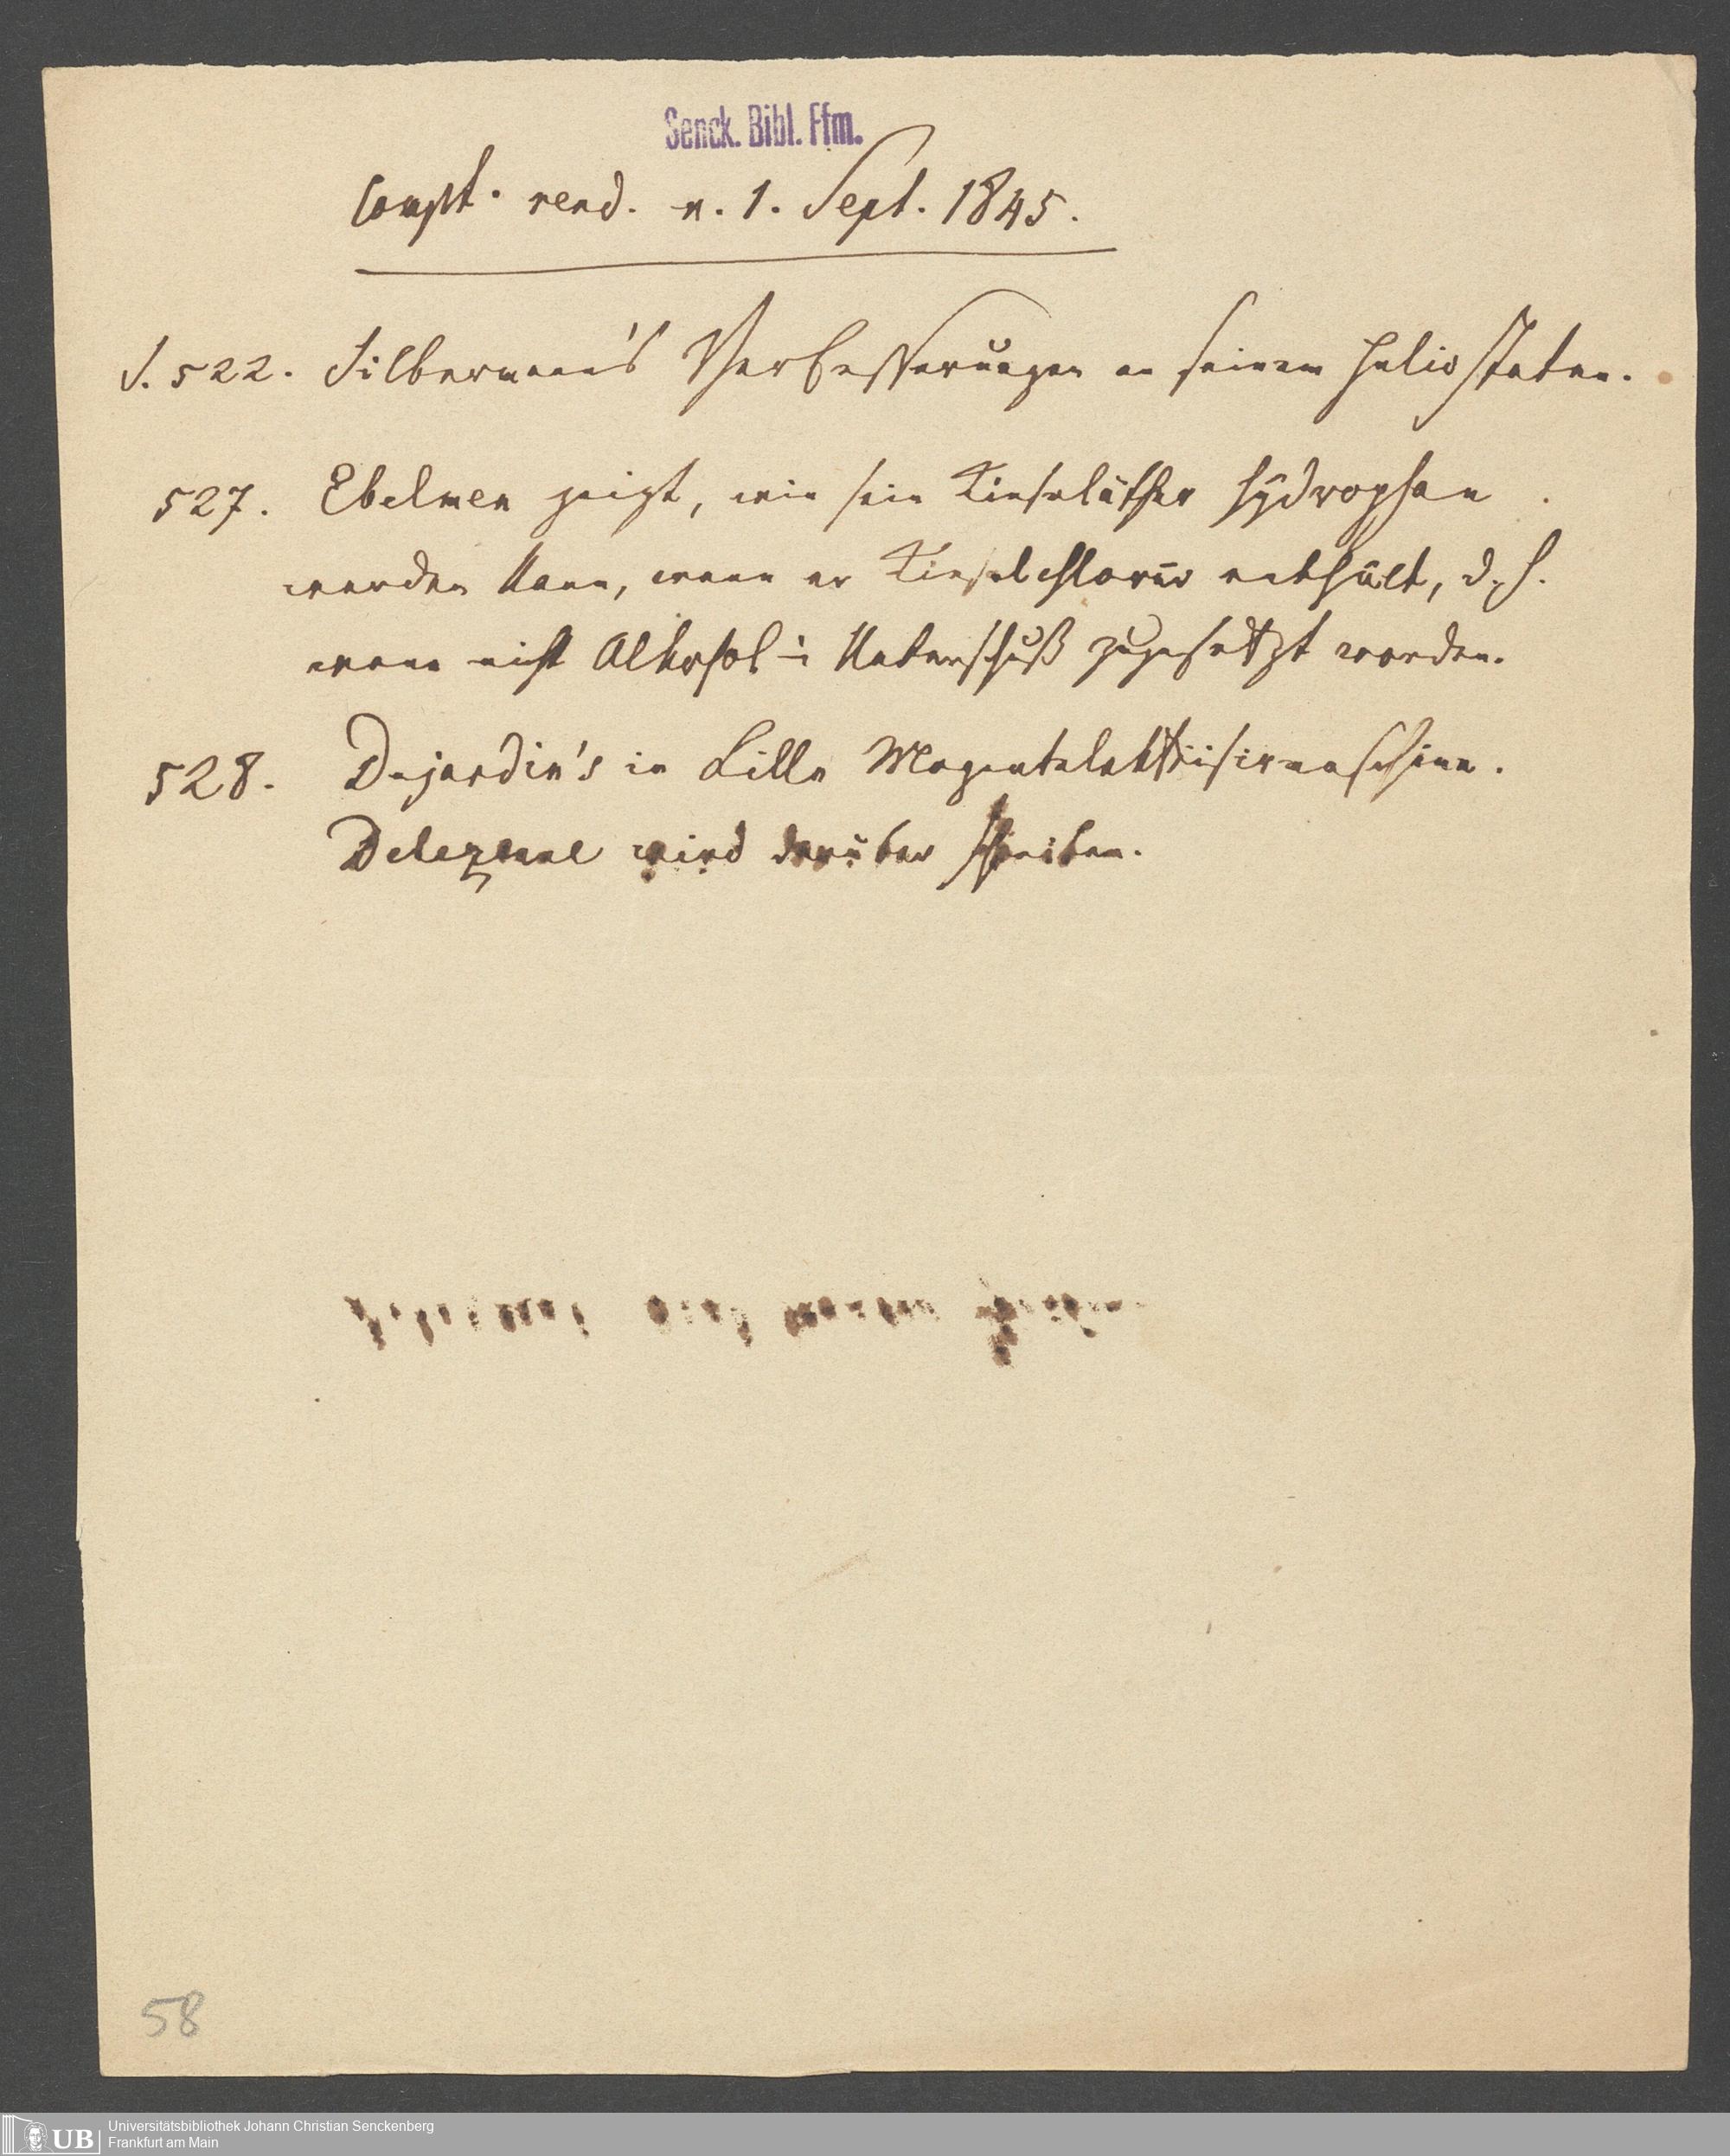 Senck. Bibl. Ffm.
Compt. rend. v. 1. Sept. 1845.
S. 522. Silbermann's Verbesserungen an seinem Heliostaten.
527. Ebelmen zeigt, wie sein Kieseläther hydrophan
werden kann, wenn er Kieselchlorür enthält, d. h.
wenn nicht Alkohol i Ueberschuß zugesetzt worden.
528. Dujardin's in Lille Magnetelektrisirmaschine.
Delezenne wird darüber schreiben.
58
UB Universitätsbibliothek Johann Christian Senckenberg
Frankfurt am Main